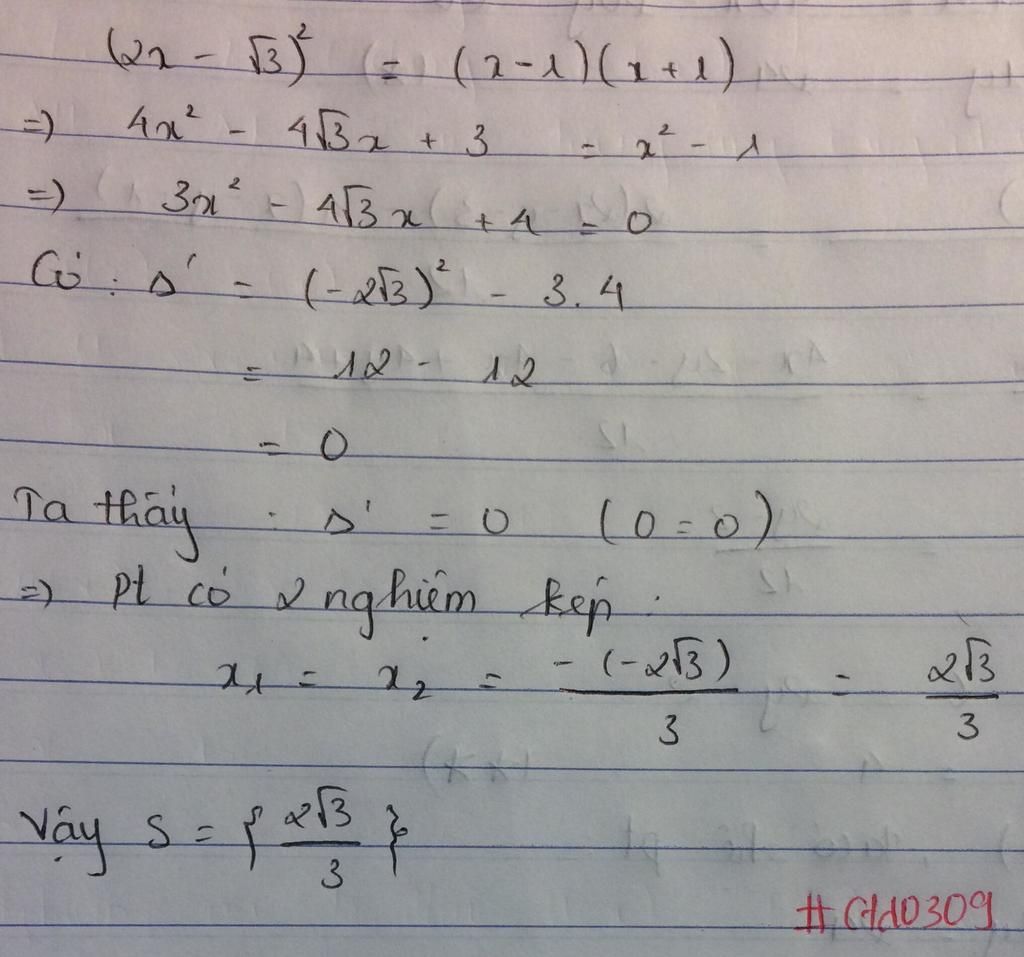 (2x - √3)² = (x-1)(x+1)
=) 4x² - 4√3x + 3 = x² - 1
=) 3x² - 4√3x + 4 = 0
Có : Δ' = (-2√3)² - 3.4
= 12 - 12
= 0
Ta thấy : Δ' = 0 (0 = 0)
=) Pt có 2 nghiệm kép :
x₁ = x₂ = -(-2√3)/3 = 2√3/3
Vậy S = {2√3/3}